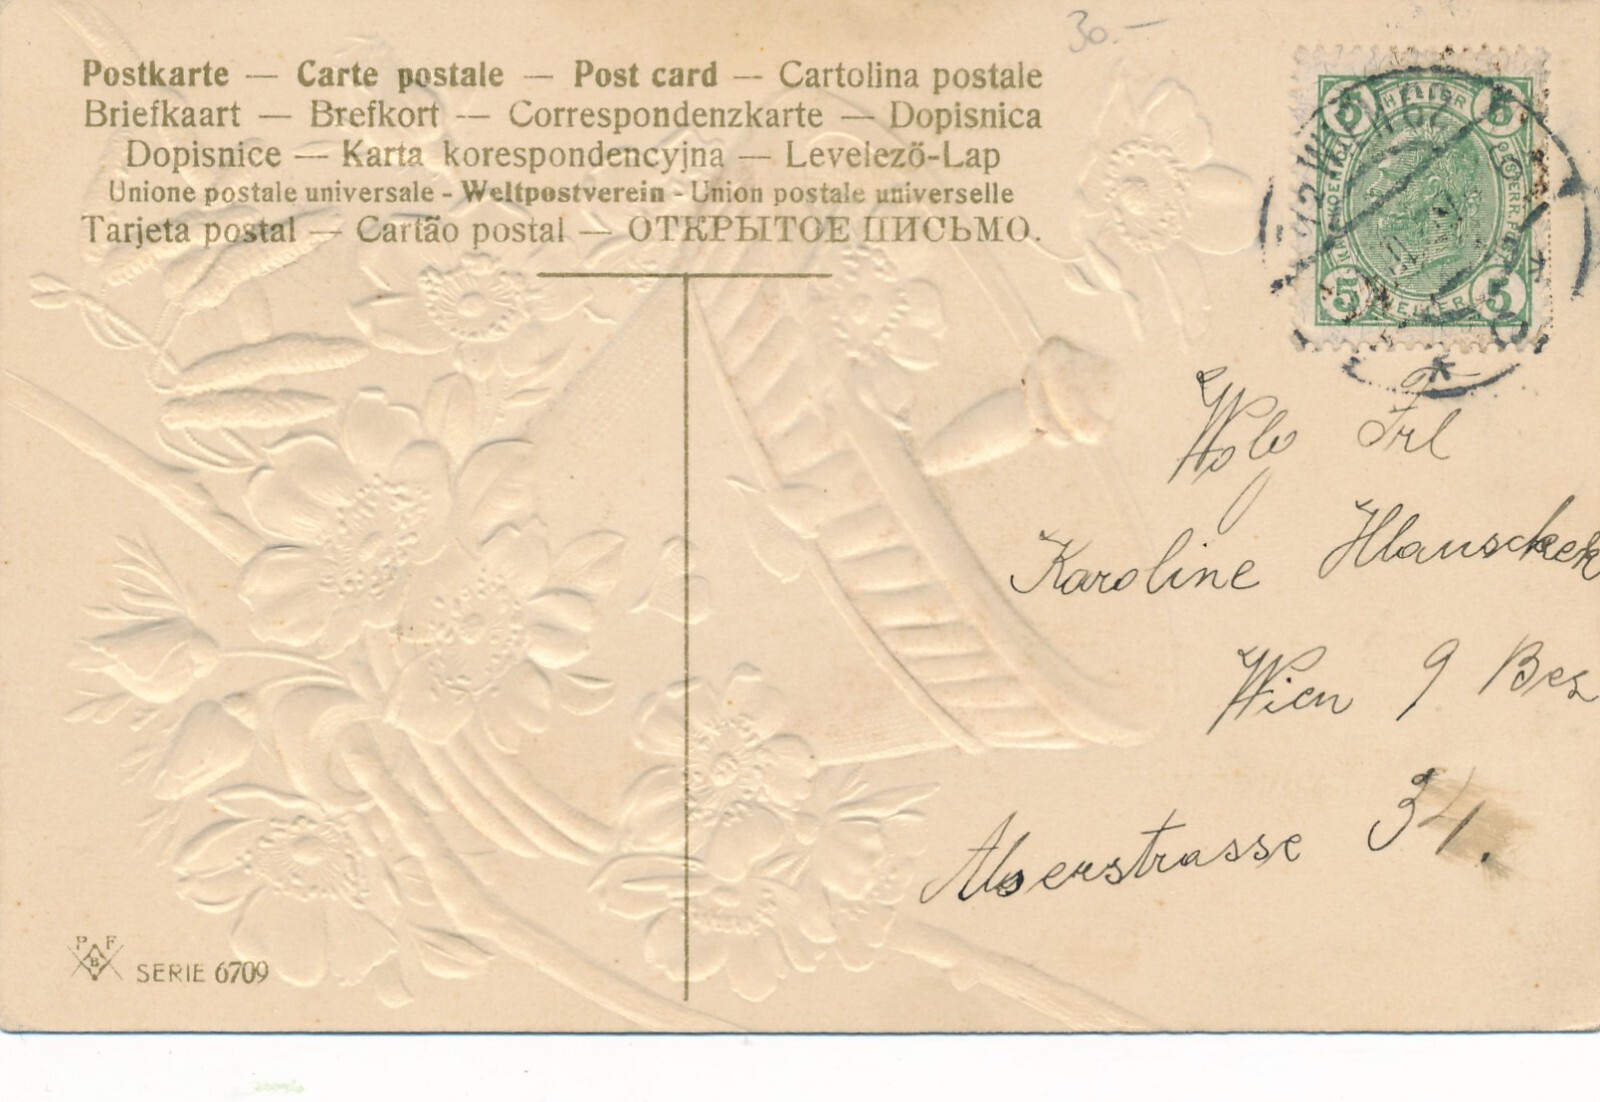 30.—
Postkarte — Carte postale — Post card — Cartolina postale
Briefkaart — Brefkort -- Correspondenzkarte — Dopisnica
Dopisnice — Karta korespondencyjna — Levelező-Lap
Unione postale universale - Weltpostverein - Union postale universelle
Tarjeta postal — Cartão postal — ОТКРЫТОЕ ПИСЬМО.
5 HELLER 5
5 HELLER 5
Frl
Karoline Hlauschek
Wien 9 Bez
Alserstrasse 34.
P F
B
SERIE 6709